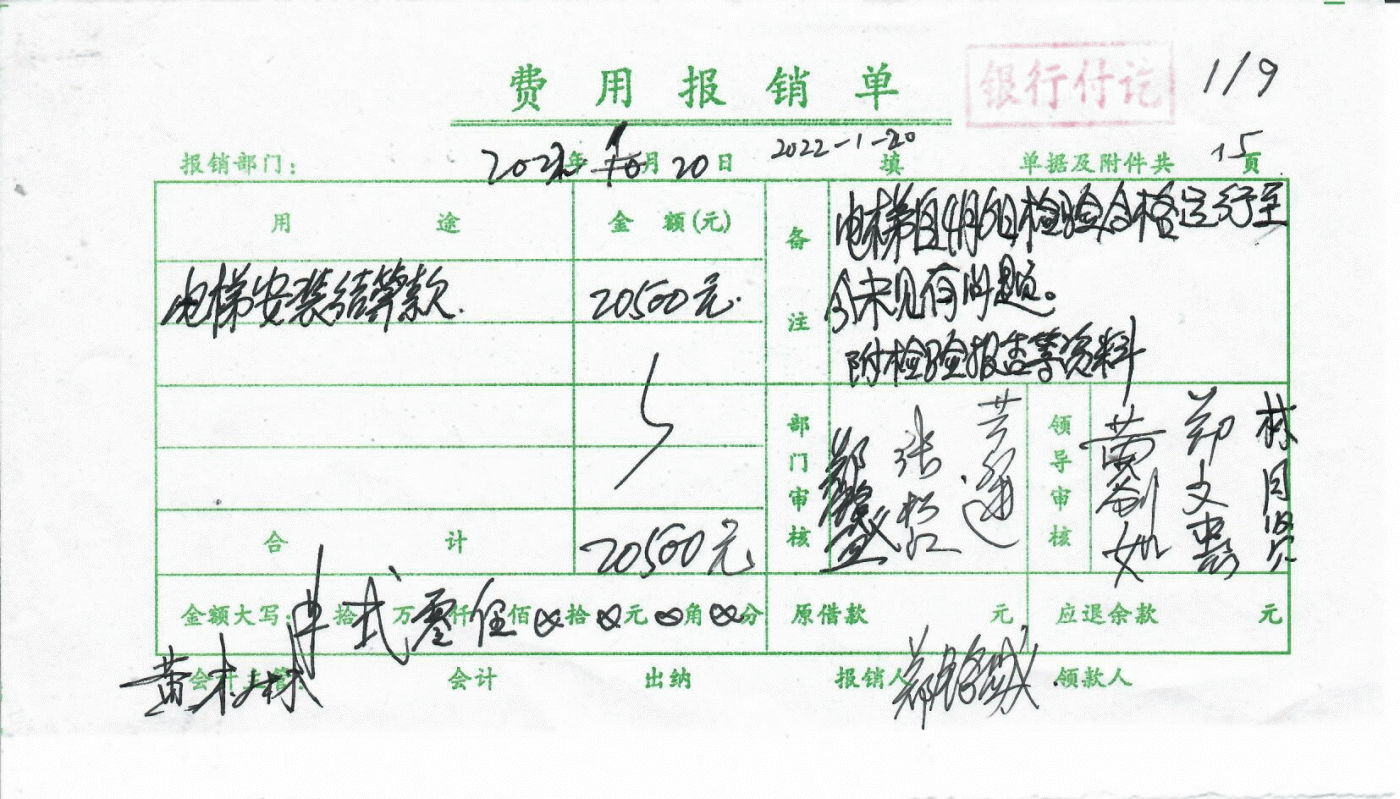 费用报销单
银行付讫
1/9
报销部门： 年 月 20 日 2022-1-20 填 单据及附件共 15 页
用途 金额(元) 备注
电梯自4月6日检验合格运行至
今未见有问题。
附检验报告等资料
电梯安装结算款. 20500元.
部门审核 领导审核
合计 20500元.
金额大写： 拾 贰 万 零 仟 伍 佰 ⊗ 拾 ⊗ 元 ⊗ 角 ⊗ 分 原借款 元 应退余款 元
会计主管： 会计 出纳 报销人 领款人